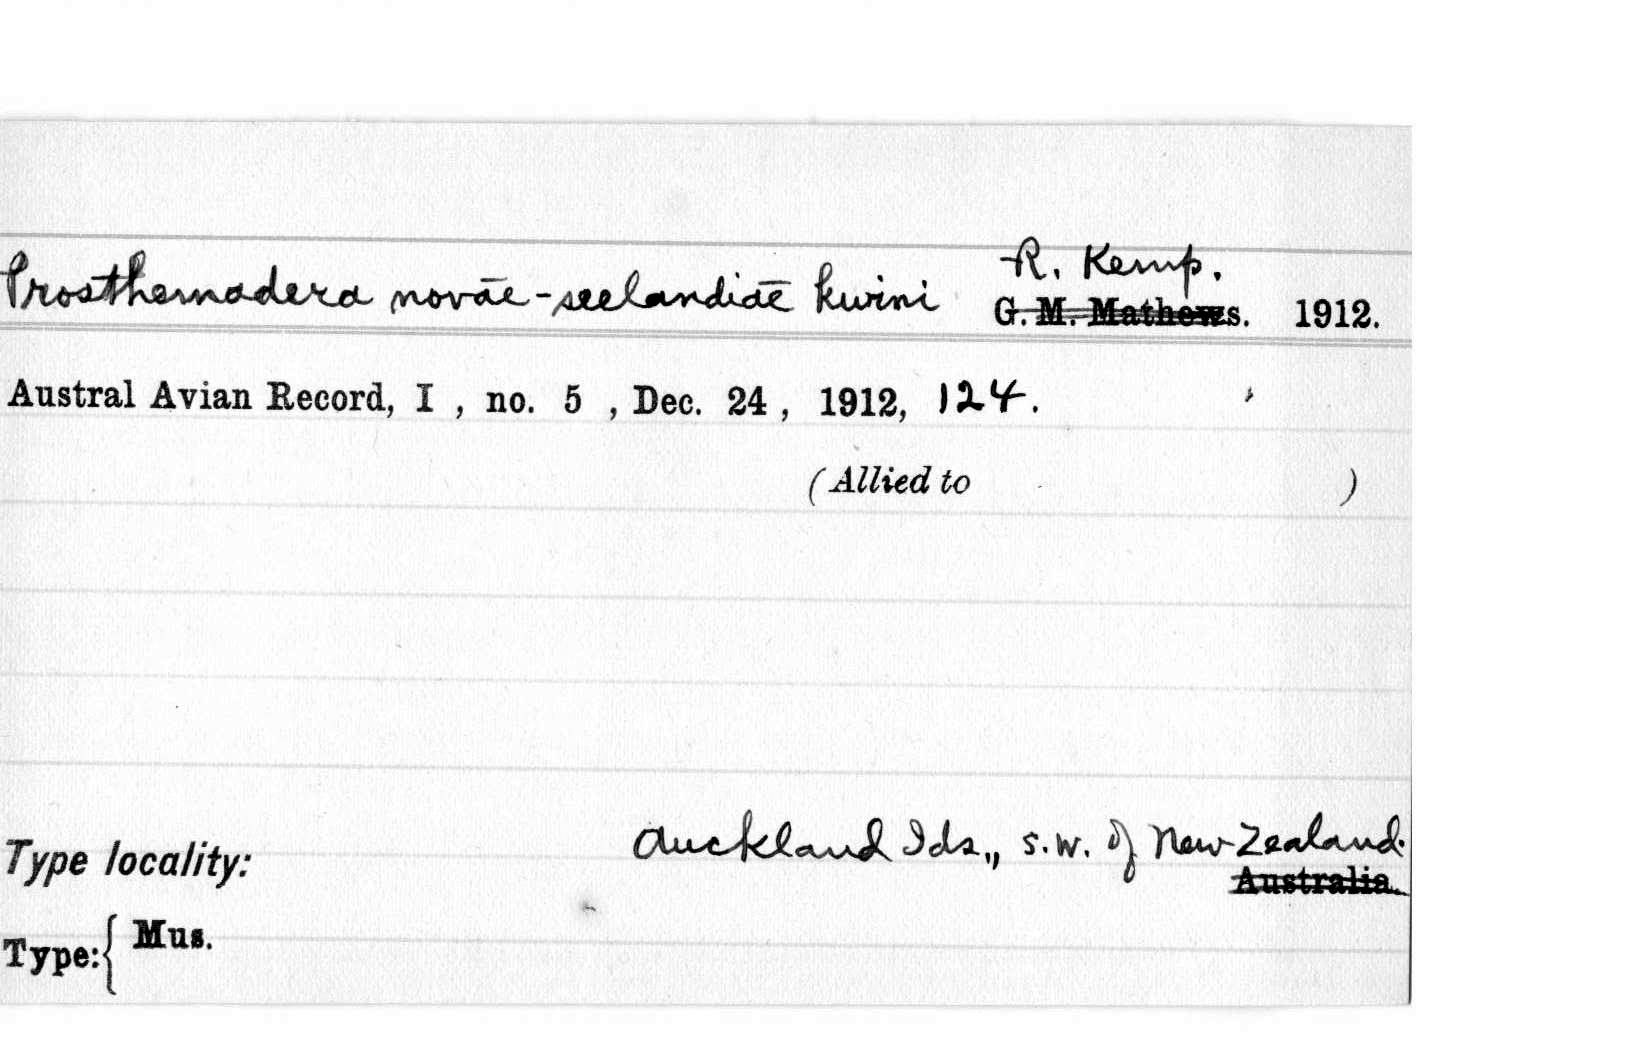 Prosthemadera novāe-seelandiāe kwini R. Kemp.
G. M. Mathews. 1912.
Austral Avian Record, I , no. 5 , Dec. 24 , 1912, 124.
(Allied to )
Type locality: Auckland Ids., s.w. of New Zealand.
Australia.
Type: { Mus.